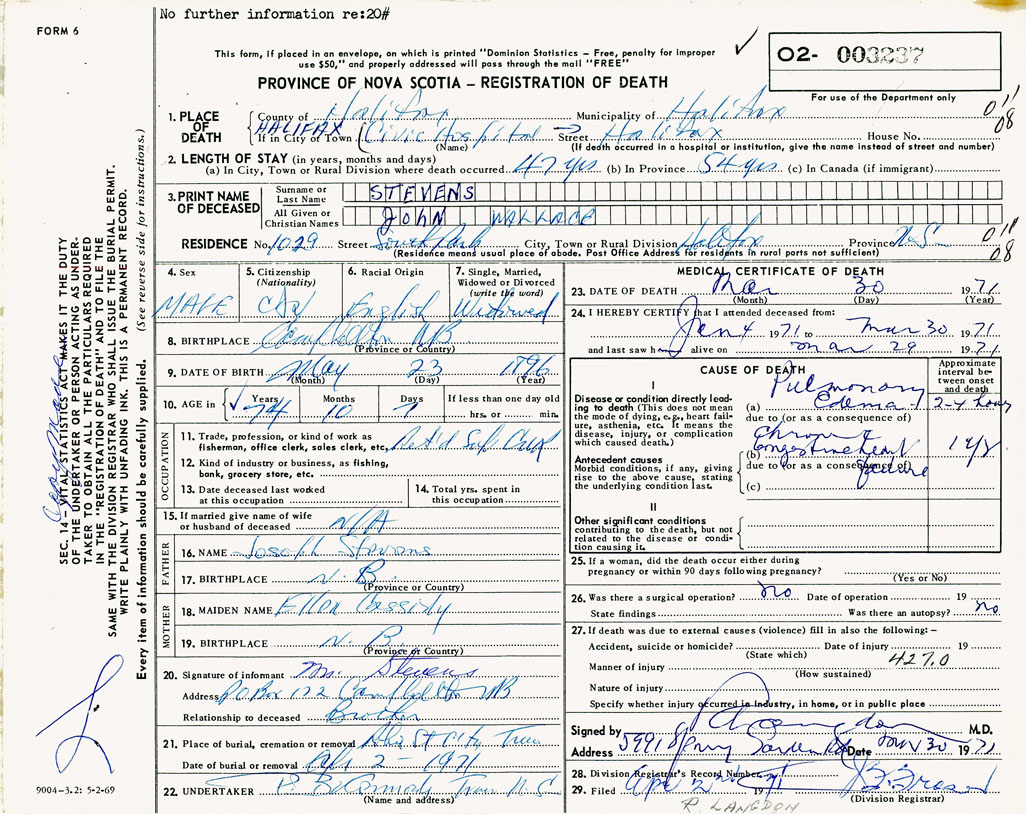 No further information re:20#
FORM 6
This form, if placed in an envelope, on which is printed "Dominion Statistics – Free, penalty for improper
use $50," and properly addressed will pass through the mail "FREE"
02- 003237
PROVINCE OF NOVA SCOTIA – REGISTRATION OF DEATH
For use of the Department only
1. PLACE OF DEATH
County of Halifax Municipality of Halifax 011 08
HALIFAX
If in City or Town Civic Hospital → Street Halifax House No.
(Name) (If death occurred in a hospital or institution, give the name instead of street and number)
2. LENGTH OF STAY (in years, months and days)
(a) In City, Town or Rural Division where death occurred 47 yrs (b) In Province 54 yrs (c) In Canada (if immigrant)
3. PRINT NAME OF DECEASED
Surname or Last Name STEVENS
All Given or Christian Names JOHN WALLACE
RESIDENCE No. 1029 Street South Park City, Town or Rural Division Halifax Province N.S. 011 08
(Residence means usual place of abode. Post Office Address for residents in rural parts not sufficient)
4. Sex MALE
5. Citizenship (Nationality) Cdn
6. Racial Origin English
7. Single, Married, Widowed or Divorced (write the word) Widowed
8. BIRTHPLACE Campbellton NB
(Province or Country)
9. DATE OF BIRTH May 23 1896
(Month) (Day) (Year)
10. AGE in Years Months Days If less than one day old
74 10 7 hrs. or min.
OCCUPATION
11. Trade, profession, or kind of work as fisherman, office clerk, sales clerk, etc. Ret'd
12. Kind of industry or business, as fishing, bank, grocery store, etc.
13. Date deceased last worked at this occupation
14. Total yrs. spent in this occupation
15. If married give name of wife or husband of deceased N/A
FATHER
16. NAME Joseph Stevens
17. BIRTHPLACE N. B.
(Province or Country)
MOTHER
18. MAIDEN NAME Ellen Cassidy
19. BIRTHPLACE N. B.
(Province or Country)
20. Signature of informant Stevens
Address P.O Box 172 Campbellton NB
Relationship to deceased Brother
21. Place of burial, cremation or removal
Date of burial or removal Apr 2 – 1971
22. UNDERTAKER N.S.
(Name and address)
MEDICAL CERTIFICATE OF DEATH
23. DATE OF DEATH Mar 30 1971
(Month) (Day) (Year)
24. I HEREBY CERTIFY that I attended deceased from:
Jan 4 1971 to Mar 30 1971
and last saw h alive on Mar 29 1971
CAUSE OF DEATH
Approximate interval between onset and death
I
Disease or condition directly leading to death (This does not mean the mode of dying, e.g., heart failure, asthenia, etc. It means the disease, injury, or complication which caused death.)
(a) Pulmonary Edema 2-4 hours
due to (or as a consequence of)
Antecedent causes
Morbid conditions, if any, giving rise to the above cause, stating the underlying condition last.
(b) Chronic Congestive heart failure
due to (or as a consequence of)
(c)
II
Other significant conditions contributing to the death, but not related to the disease or condition causing it.
25. If a woman, did the death occur either during
pregnancy or within 90 days following pregnancy?
(Yes or No)
26. Was there a surgical operation? no Date of operation 19
State findings Was there an autopsy? no
27. If death was due to external causes (violence) fill in also the following:–
Accident, suicide or homicide? Date of injury 19
(State which) 427.0
Manner of injury
(How sustained)
Nature of injury
Specify whether injury occurred in industry, in home, or in public place
Signed by M.D.
Address 5991 Spring Garden Rd Date Mar 30 1971
28. Division Registrar's Record Number
29. Filed Apr 2nd 1971
(Division Registrar)
R. LANGDON
9004-3.2: 5-2-69
SEC. 14 – VITAL STATISTICS ACT MAKES IT THE DUTY
OF THE UNDERTAKER OR PERSON ACTING AS UNDER-
TAKER TO OBTAIN ALL THE PARTICULARS REQUIRED
IN THE "REGISTRATION OF DEATH" AND TO FILE THE
SAME WITH THE DIVISION REGISTRAR WHO SHALL ISSUE THE BURIAL PERMIT.
WRITE PLAINLY WITH UNFADING INK. THIS IS A PERMANENT RECORD.
Every item of information should be carefully supplied. (See reverse side for instructions.)